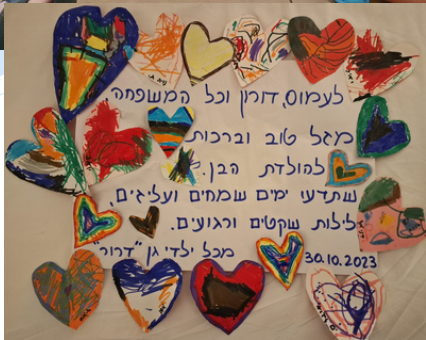 לעמוס, דורון וכל המשפחה
מגל טוב וברכות
להולדת הבן.
שתדעי ימים שמחים ועליגים,
לילות שקטים ורגועים.
מכל ילדי גן "דרור"
30.10.2023